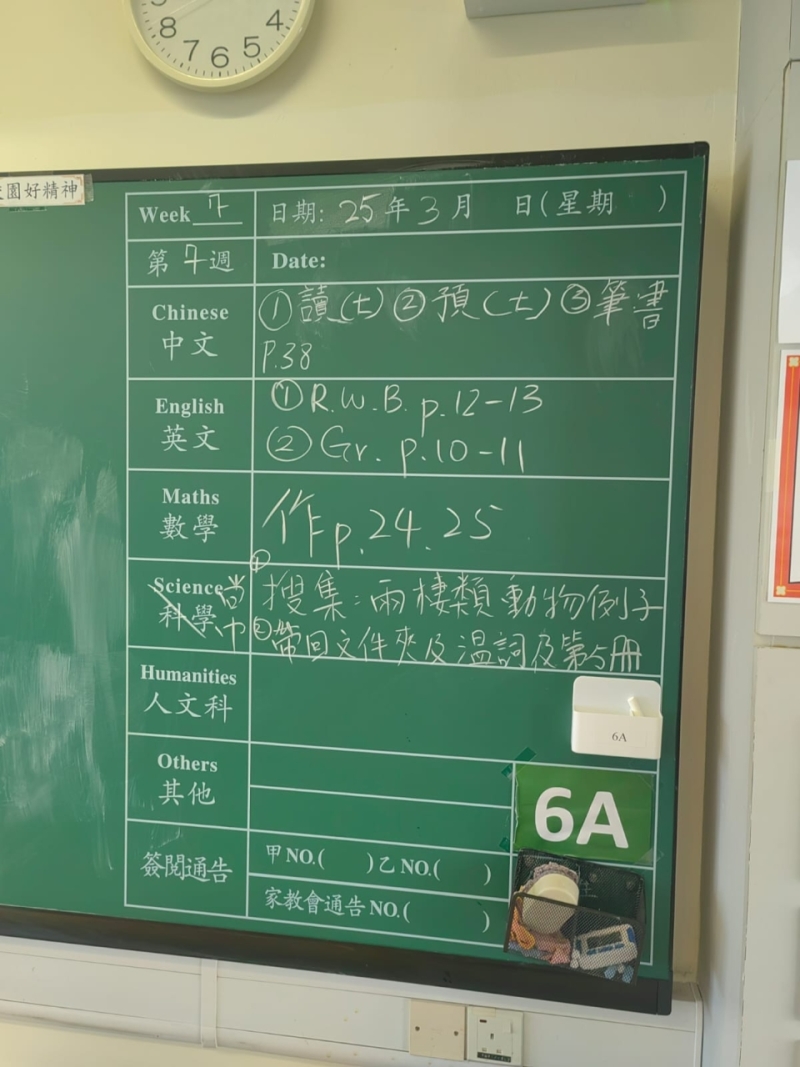 8
7
6
5
4
園好精神
Week 7
日期: 25年3月 日(星期 )
第7週
Date:
Chinese
中文
①讀(七)②預(七)③筆書
P.38
English
英文
①R.W.B. p.12-13
②Gr. p.10-11
Maths
數學
作p.24.25
Science
科學
常
①搜集:兩棲類動物例子
②帶回文件夾及溫詞及第5冊
Humanities
人文科
6A
Others
其他
6A
簽閱通告
甲NO.( )乙NO.( )
家教會通告NO.( )